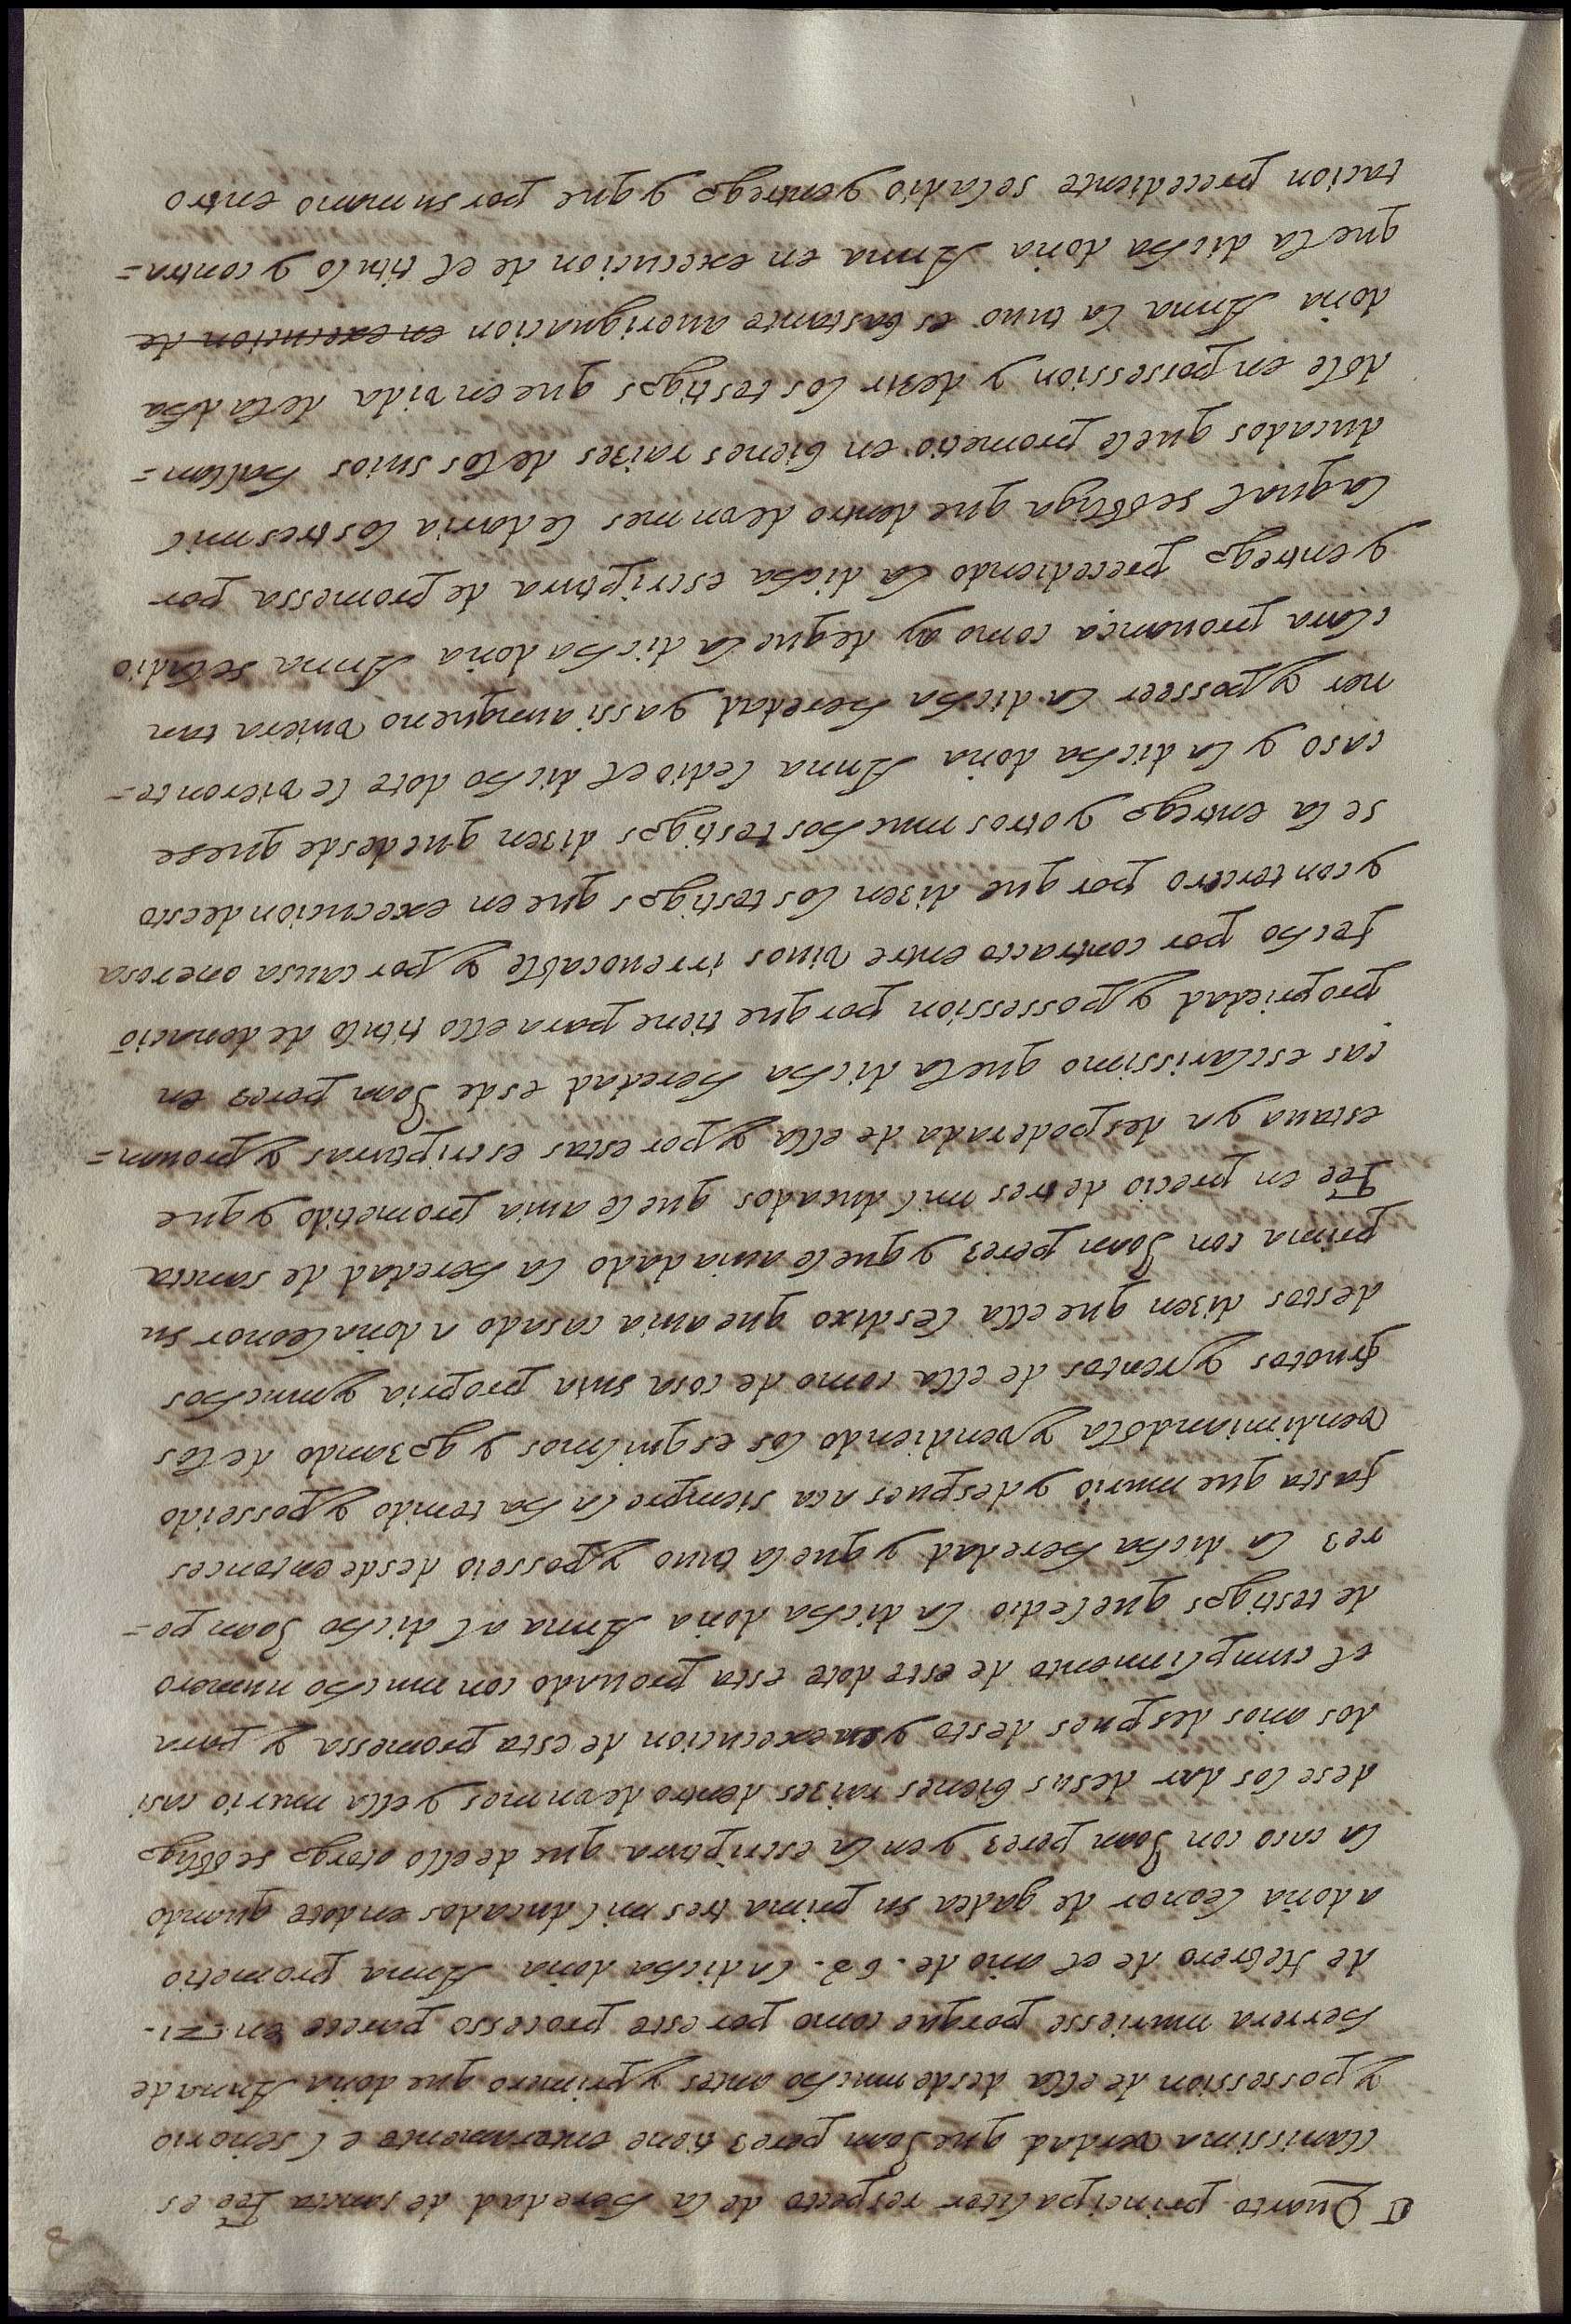 Quarto principaliter respecto de la heredad de sancta Fee es
clarissima verdad que Joan perez tiene enteramente el señorio
y possession de ella desde mucho antes y primero que doña Anna de
herrera muriesse porque como por este processo parece en .21.
de Hebrero de el año de .62. la dicha doña Anna prometio
a doña leonor de gadea su prima tres mil ducados en dote quando
la caso con Joan perez y en la escriptura que de ello otorgo se obligo
dese los dar de sus bienes raizes dentro de un mes y ella murio casi
dos años despues desto y en execucion de esta promessa y para
el cumplimiento de este dote esta prouado con mucho numero
de testigos que le dio la dicha doña Anna al dicho Joan pe=
rez la dicha heredad y que la tuuo y posseio desde entonces
fasta que murio y despues aca siempre la ha tenido y posseido
vendimiandola y vendiendo los esquilmos y gozando de los
frutos y rentas de ella como de cosa suia propria y muchos
destos dizen que ella les dixo que auia casado a doña leonor su
prima con Joan perez y que le auia dado la heredad de sancta
Fee en precio de tres mil ducados que le auia prometido y que
estaua ya despoderada de ella y por estas escripturas y prouan=
cas es clarissimo que la dicha heredad es de Joan perez en
propriedad y possession porque tiene para ello titulo de donaciõ
fecho por contracto entre viuos irreuocable y por causa onerosa
y con tercero por que dizen los testigos que en execucion de esto
se la entrego y otros muchos testigos dizen que desde que se
caso y la dicha doña Anna le dio el dicho dote le vieron te=
ner y posseer la dicha heredad y assi aunque no vuiera tan
clara prouança como ay de que la dicha doña Anna se la dio
y entrego precediendo la dicha escriptura de promessa por
la qual se obliga que dentro de un mes le daria los tres mil
ducados que le prometio en bienes raizes de los suios hallan=
dole en possession y dezir los testigos que en vida de la dha
doña Anna la tuuo es bastante aueriguacion en execucion de
que la dicha doña Anna en execucion de el titulo y contra=
tacion precediente se la dio y entrego y que por su mano entro